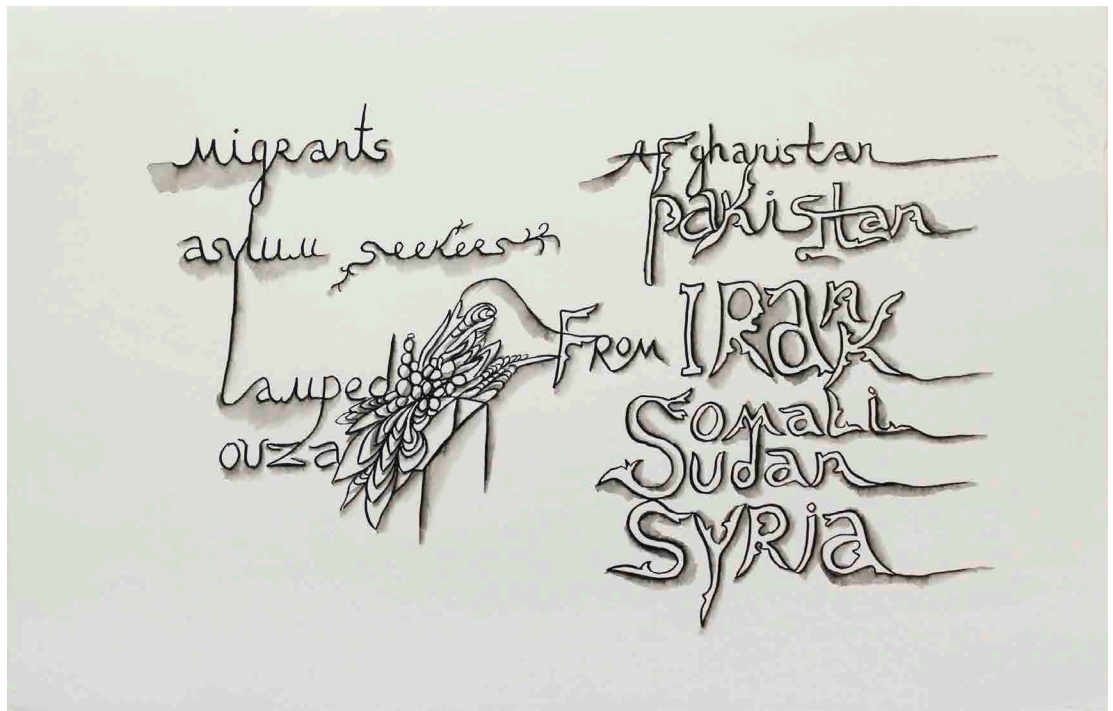 Migrants
asylum seekers
Lamped
ouza
From
Afghanistan
Pakistan
IRan
K
Somali
Sudan
Syria